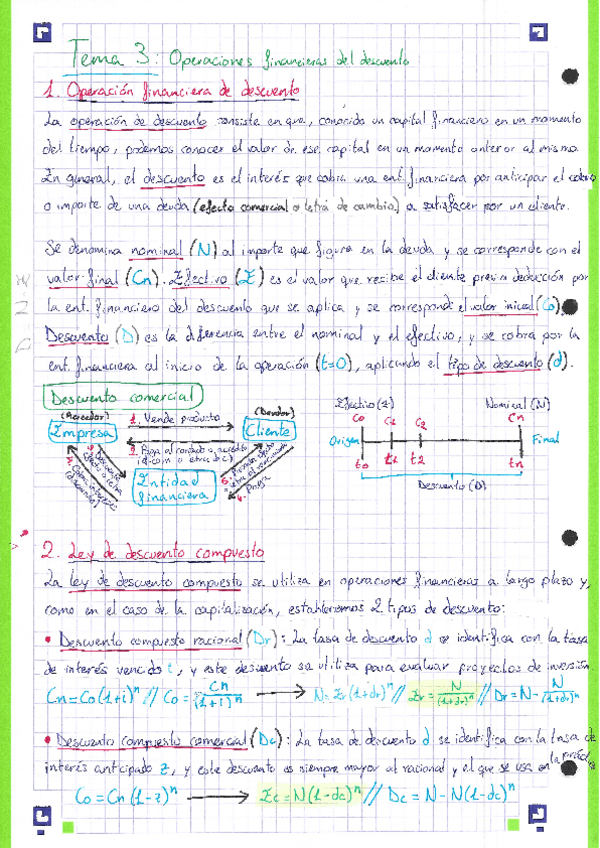 Tema 3: Operaciones financieras del descuento
1. Operación financiera de descuento
La operación de descuento consiste en que, conocido un capital financiero en un momento
del tiempo, podemos conocer el valor de ese capital en un momento anterior al mismo.
En general, el descuento es el interés que cobra una ent. financiera por anticipar el cobro
o importe de una deuda (efecto comercial o letra de cambio) a satisfacer por un cliente.
Se denomina nominal (N) al importe que figura en la deuda y se corresponde con el
valor final (Cn). Efectivo (E) es el valor que recibe el cliente previa deducción por
la ent. financiera del descuento que se aplica y se corresponde el valor inicial (Co)
Descuento (D) es la diferencia entre el nominal y el efectivo, y se cobra por la
ent. financiera al inicio de la operación (t=0), aplicando el tipo de descuento (d).
Descuento comercial
(Acreedor) 1. Vende producto (Deudor)
Empresa Cliente
2. Paga al contado o a crédito
Entidad
financiera
4. Paga
Efectivo (E) Nominal (N)
Co C1 C2 Cn
Origen Final
to t1 t2 tn
Descuento (D)
2. Ley de descuento compuesto
La ley de descuento compuesto se utiliza en operaciones financieras a largo plazo y,
como en el caso de la capitalización, establecemos 2 tipos de descuento:
• Descuento compuesto racional (Dr): La tasa de descuento d se identifica con la tasa
de interés vencido i, y este descuento se utiliza para evaluar proyectos de inversión
Cn=Co(1+i)^n // Co = Cn/(1+i)^n → N=Er(1+dr)^n // Er = N/(1+dr)^n // Dr=N- N/(1+dr)^n
• Descuento compuesto comercial (Dc): La tasa de descuento d se identifica con la tasa de
interés anticipado z, y este descuento es siempre mayor al racional y el que se usa en la práctica
Co=Cn(1-z)^n → Ec=N(1-dc)^n // Dc=N-N(1-dc)^n